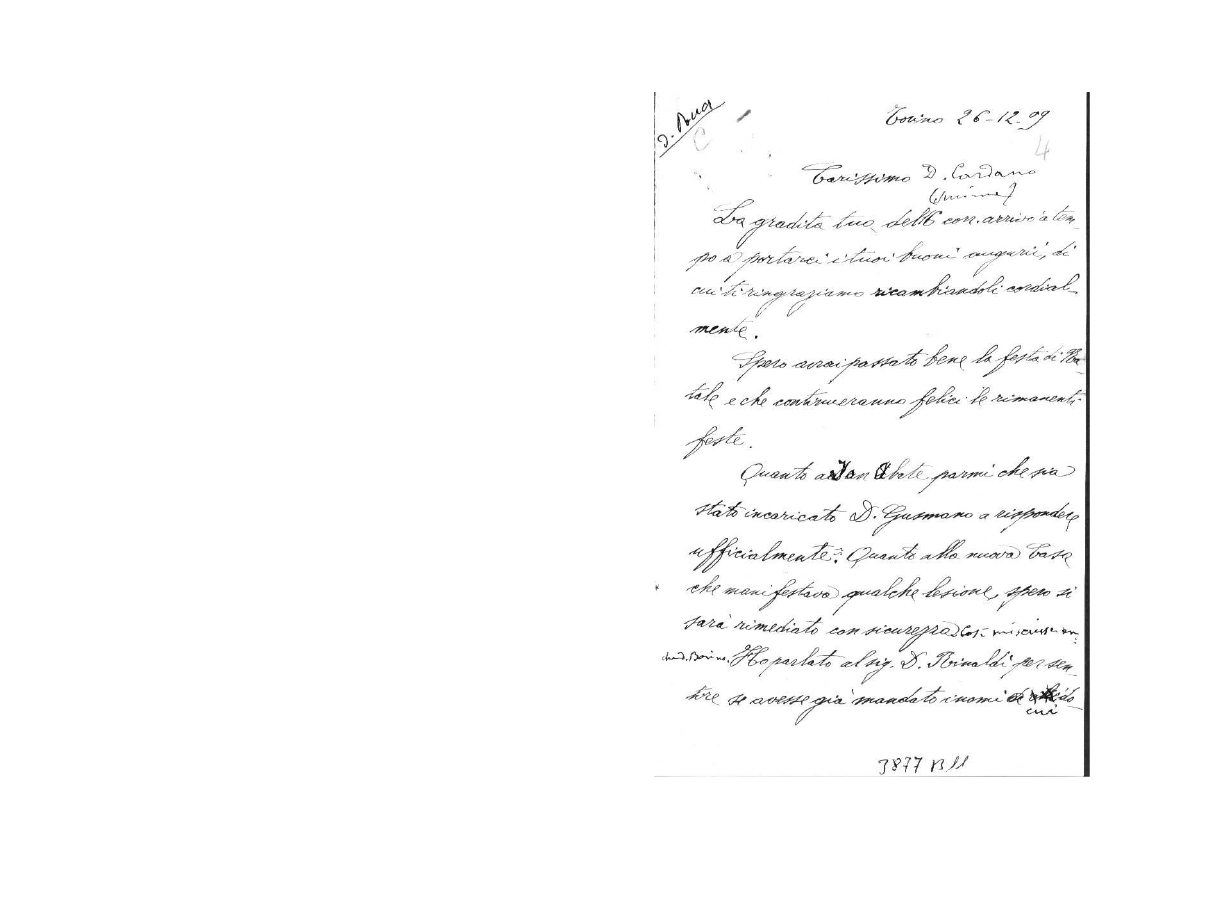 D. Rua
C
Torino 26-12-99
4
Carissimo D. Cardano
La gradita tua dell6 corr. arrivò a tem-
po a portarci i tuoi buoni augurii, di
cui ti ringraziamo ricambiandoli cordial-
mente.
Spero avrai passato bene la festa di Na-
tale e che continueranno felici le rimanenti
feste.
Quanto a Jan Abate parmi che sia
stato incaricato D. Gusmano a rispondere
ufficialmente. Quanto alla nuova Casa
che manifestava qualche lesione, spero si
sarà rimediato con sicurezza. Così mi scrisse an-
che d. Borino. Ho parlato al sig. D. Rinaldi per sen-
tire se avesse già mandato i nomi di
cui
3877 B11